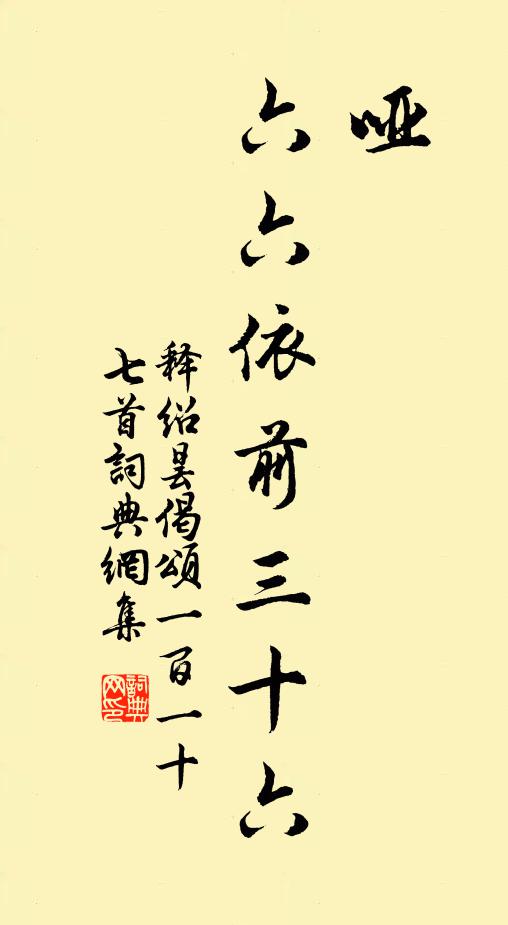 哑
六六依前三十六
释绍昙偈颂一百一十
七首詞典網集
詞典
网印